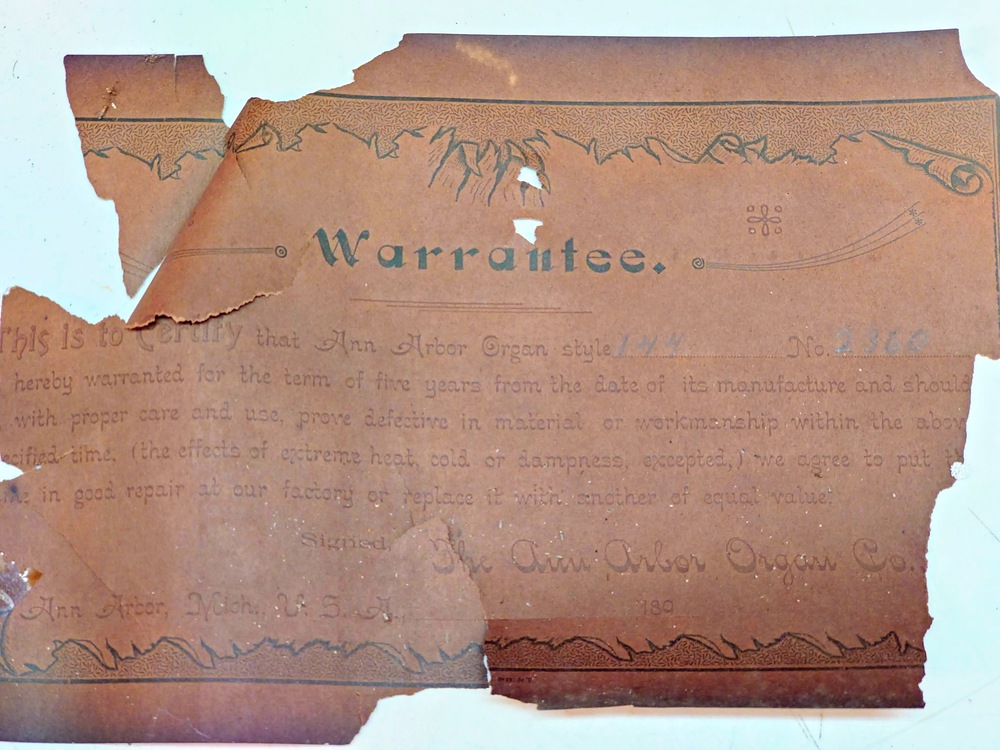 Warrantee.
This is to Certify that Ann Arbor Organ style 144 No. 2360
hereby warranted for the term of five years from the date of its manufacture and should
with proper care and use, prove defective in material or workmanship within the abov
ecified time, (the effects of extreme heat, cold or dampness, excepted,) we agree to put th
me in good repair at our factory or replace it with another of equal value.
Signed, The Ann Arbor Organ Co.
Ann Arbor, Mich., U. S. A., 180